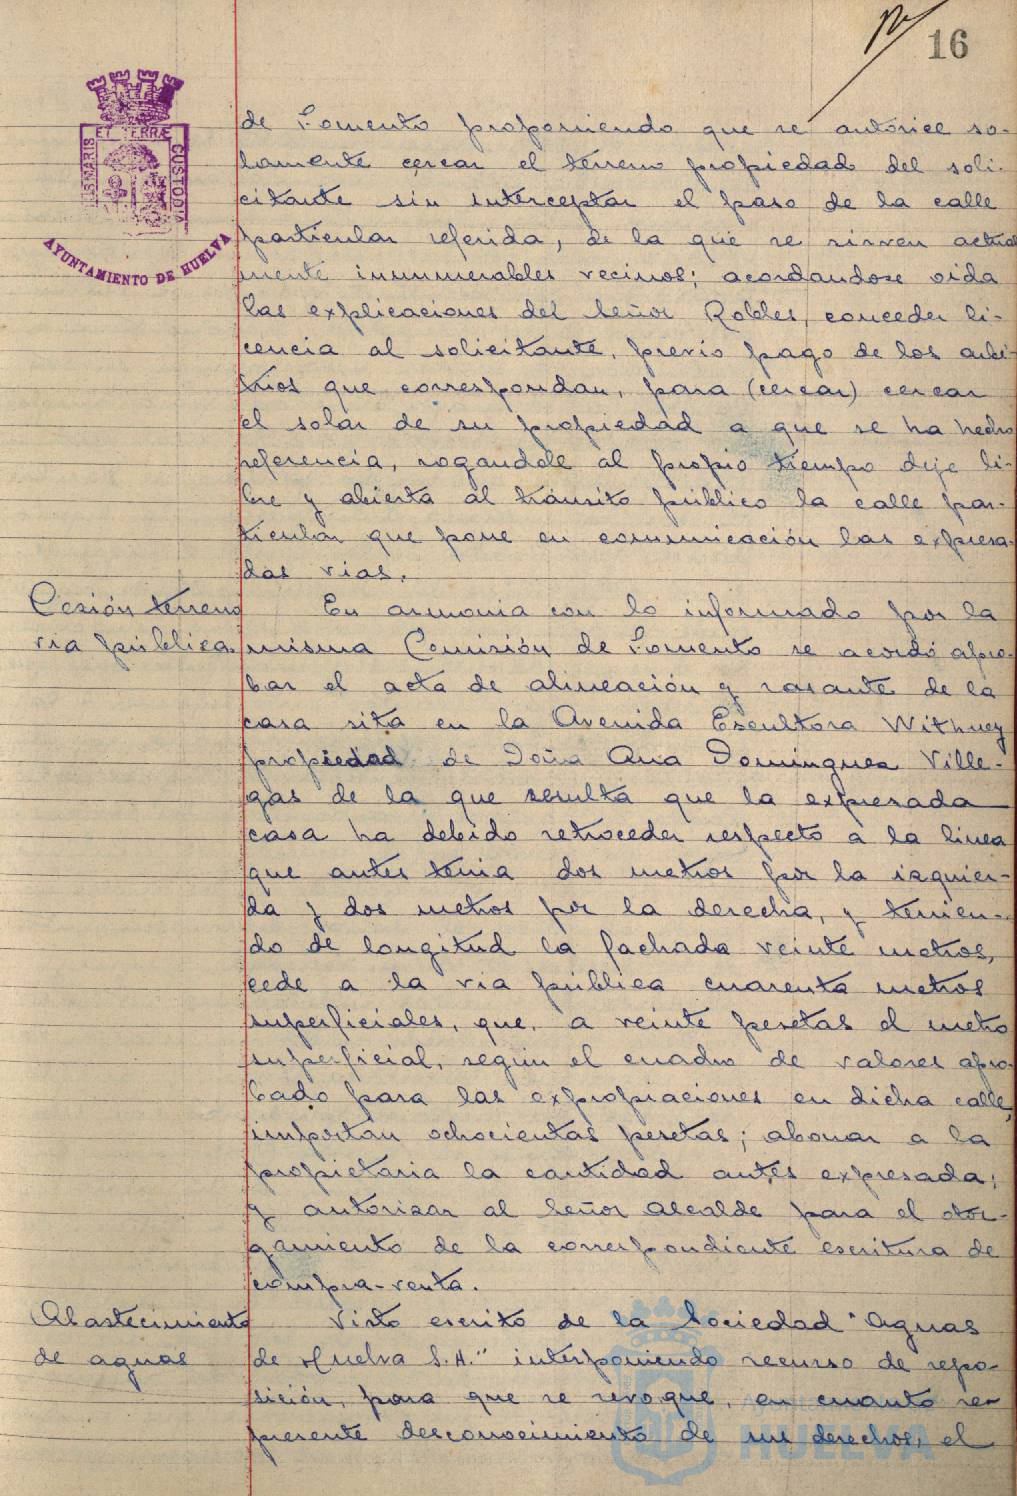 16
PORTUS MARIS ET TERRÆ CUSTODIA
AYUNTAMIENTO DE HUELVA
de Fomento proponiendo que se autorice so-
lamente cercar el terreno propiedad del soli-
citante sin interceptar el paso de la calle
particular referida, de la que se sirven actual
mente innumerables vecinos; acordandose oida
las explicaciones del Señor Robles, conceder li-
cencia al solicitante, previo pago de los arbi-
trios que correspondan, para (cercar) cercar
el solar de su propiedad a que se ha hecho
referencia, rogandole al propio tiempo deje li-
bre y abierta al tránsito público la calle par-
ticular que pone en comunicación las expresa-
das vias.
Cesión terreno
via pública.
En armonia con lo informado por la
misma Comisión de Fomento se acordó apro-
bar el acta de alineación y rasante de la
casa sita en la Avenida Escultora Withney
propiedad de Doña Ana Dominguez Ville-
gas de la que resulta que la expresada
casa ha debido retroceder respecto a la linea
que antes tenia dos metros por la izquier-
da y dos metros por la derecha, y tenien-
do de longitud la fachada veinte metros,
cede a la via pública cuarenta metros
superficiales, que, a veinte pesetas el metro
superficial, según el cuadro de valores apro-
bado para las expropiaciones en dicha calle,
importan ochocientas pesetas; abonar a la
propietaria la cantidad antes expresada;
y autorizar al Señor Alcalde para el otor-
gamiento de la correspondiente escritura de
compra-venta.
Abastecimiento
de aguas
Visto escrito de la Sociedad "Aguas
de Huelva S.A." interponiendo recurso de repo-
sición, para que se revoque, en cuanto re-
presente desconocimiento de sus derechos, el
HUELVA